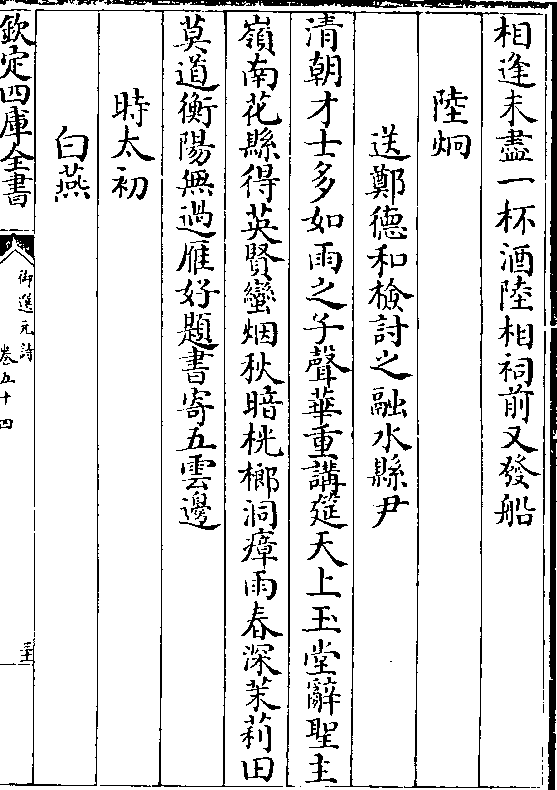 相逢未盡一杯酒陸相祠前又發船
陸炯
送鄭德和檢討之融水縣尹
清朝才士多如雨之子聲華重講筵天上玉堂辭聖主
嶺南花縣得英賢蠻烟秋暗桄榔洞瘴雨春深茉莉田
莫道衡陽無過雁好題書寄五雲邊
時太初
白燕
欽定四庫全書
御選元詩
卷五十四